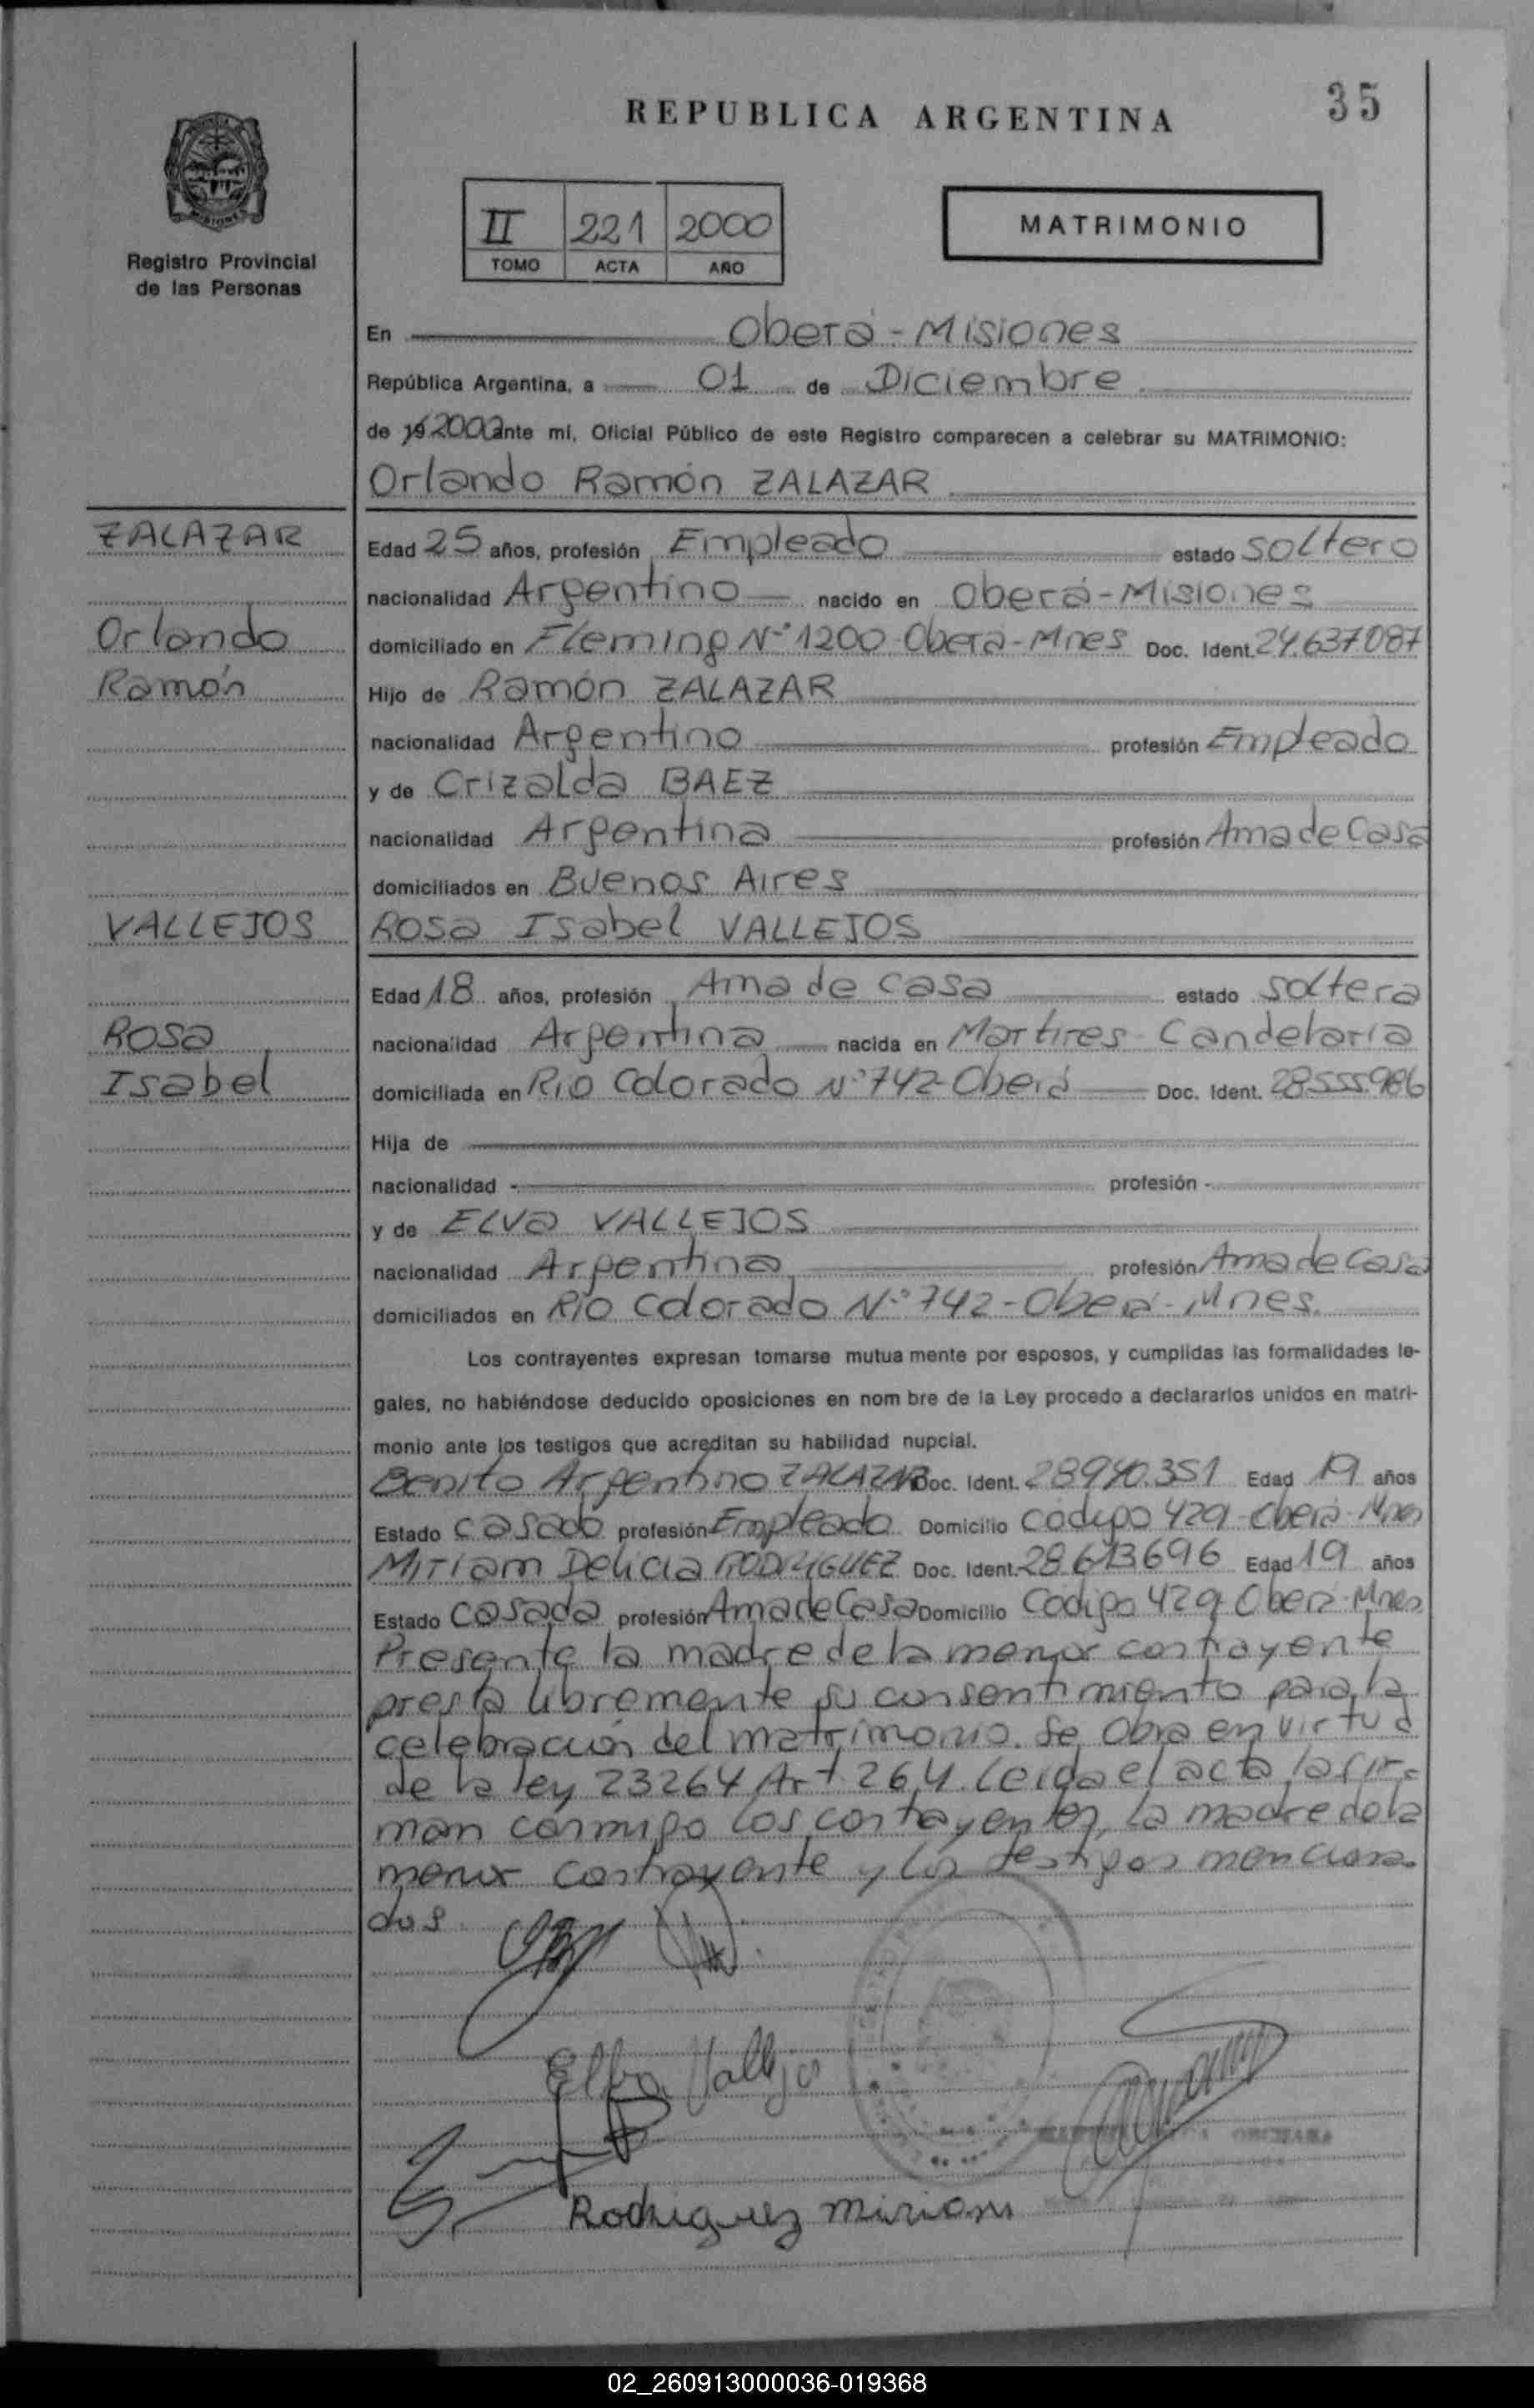 REPUBLICA ARGENTINA
35
II 221 2000
TOMO ACTA AÑO
MATRIMONIO
Registro Provincial
de las Personas
En Oberá - Misiones
República Argentina, a 01 de Diciembre
de 19 2000 ante mi, Oficial Público de este Registro comparecen a celebrar su MATRIMONIO:
Orlando Ramón ZALAZAR
ZALAZAR
Orlando
Ramón
Edad 25 años, profesión Empleado estado soltero
nacionalidad Argentino nacido en Oberá - Misiones
domiciliado en Fleming Nº 1200 Oberá - Mnes Doc. Ident. 24.637.087
Hijo de Ramón ZALAZAR
nacionalidad Argentino profesión Empleado
y de Crizalda BAEZ
nacionalidad Argentina profesión Ama de Casa
domiciliados en Buenos Aires
VALLEJOS
Rosa
Isabel
Rosa Isabel VALLEJOS
Edad 18 años, profesión Ama de casa estado soltera
nacionalidad Argentina nacida en Martires - Candelaria
domiciliada en Río Colorado Nº 742 - Oberá Doc. Ident. 28.555.986
Hija de
nacionalidad profesión
y de ELVA VALLEJOS
nacionalidad Argentina profesión Ama de Casa
domiciliados en Río Colorado Nº 742 - Oberá - Mnes.
Los contrayentes expresan tomarse mutua mente por esposos, y cumplidas las formalidades le-
gales, no habiéndose deducido oposiciones en nom bre de la Ley procedo a declararlos unidos en matri-
monio ante los testigos que acreditan su habilidad nupcial.
Benito Argentino ZALAZAR Doc. Ident. 28940.351 Edad 19 años
Estado casado profesión Empleado Domicilio código 429 - Oberá - Mnes
Miriam Delicia RODRIGUEZ Doc. Ident. 28613696 Edad 19 años
Estado casada profesión Ama de Casa Domicilio Código 429 Oberá - Mnes
Presente la madre de la menor contrayente
presta libremente su consentimiento para la
celebración del matrimonio. Se obra en virtud
de la ley 23264 Art 264. Leída el acta, la fir-
man conmigo los contrayentes, la madre de la
menor contrayente y los testigos menciona-
dos.
Elba Vallejo
Rodriguez Miriam
02_260913000036-019368